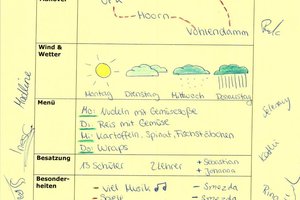 Manöver
Urk
Hoorn
Volendamm
Wind &
Wetter
Montag Dienstag Mittwoch Donnerstag
Menü
Mo: Nudeln mit Gemüsesoße
Di: Reis mit Gemüse
Mi: Kartoffeln, Spinat, Fischstäbchen
Do: Wraps
Besatzung
13 Schüler 2 Lehrer + Sebastian
+ Johanna
Besonder-
heiten
- viel Musik
- Smezda
- Spiele
- Smezda